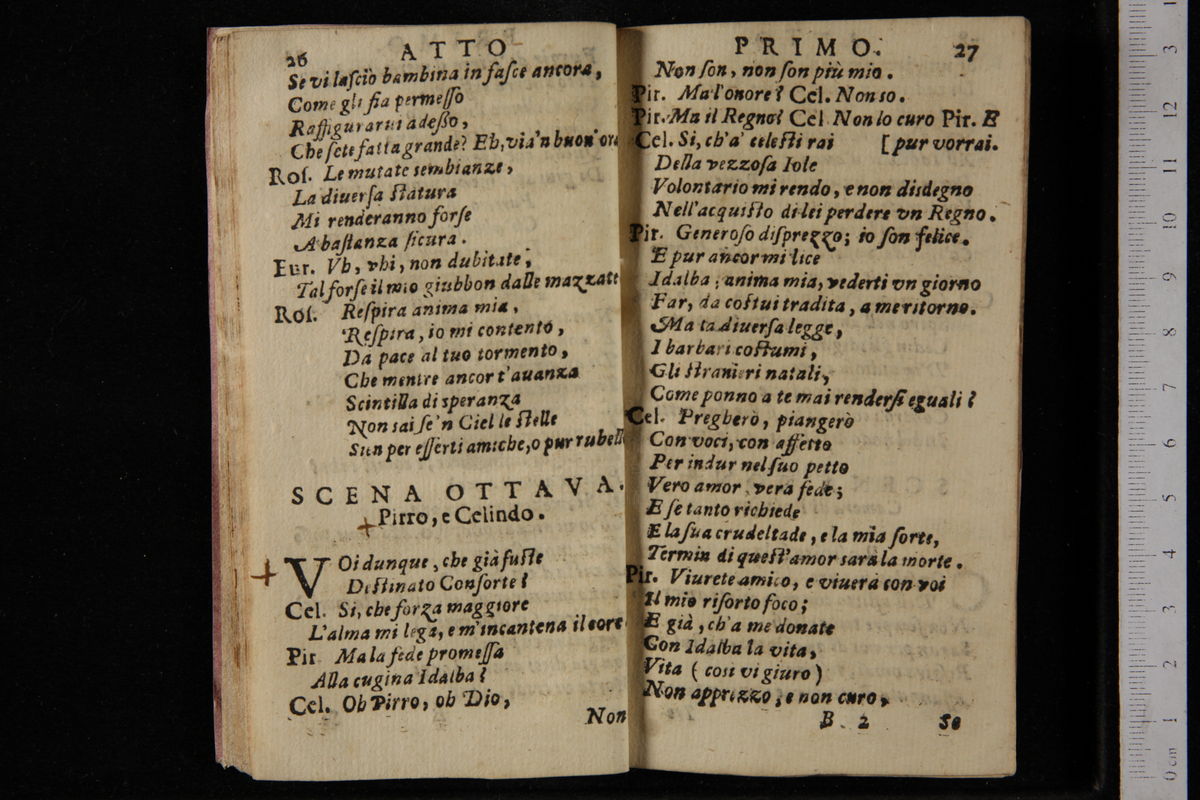 26 ATTO
Se vi lasciò bambina in fasce ancora,
Come gli fia permesso
Raffigurarui adesso,
Che sete fatta grande? Eh, via 'n buon' ora
Ros. Le mutate sembianze,
La diuersa statura
Mi renderanno forse
A bastanza sicura.
Eur. Vh, vhi, non dubitate,
Tal forse il mio giubbon dalle mazzate
Ros. Respira anima mia,
Respira, io mi contento,
Da pace al tuo tormento,
Che mentre ancor t'auanza
Scintilla di speranza
Non sai se 'n Ciel le stelle
Sun per esserti amiche, o pur rubelle
SCENA OTTAVA.
Pirro, e Celindo.
VOi dunque, che già fuste
Destinato Consorte?
Cel. Si, che forza maggiore
L'alma mi lega, e m'incantena il core
Pir. Ma la fede promessa
Alla cugina Idalba?
Cel. Oh Pirro, oh Dio,
Non
PRIMO. 27
Non son, non son più mio.
Pir. Ma l'onore? Cel. Non so.
Pir. Ma il Regno? Cel Non lo curo Pir. E
Cel. Si, ch'a' celesti rai [pur vorrai.
Della vezzosa Iole
Volontario mi rendo, e non disdegno
Nell'acquisto di lei perdere vn Regno.
Pir. Generoso disprezzo; io son felice.
E pur ancor mi lice
Idalba, anima mia, vederti vn giorno
Far, da costui tradita, a me ritorno.
Ma la diuersa legge,
I barbari costumi,
Gli stranieri natali,
Come ponno a te mai rendersi eguali?
Cel. Pregherò, piangerò
Con voci, con affetto
Per indur nel suo petto
Vero amor, vera fede;
E se tanto richiede
E la sua crudeltade, e la mia sorte,
Termin di quest'amor sarà la morte.
Pir. Viurete amico, e viuerà con voi
Il mio risorto foco;
E già, ch'a me donate
Con Idalba la vita,
Vita (così vi giuro)
Non apprezzo, e non curo,
B 2 Se